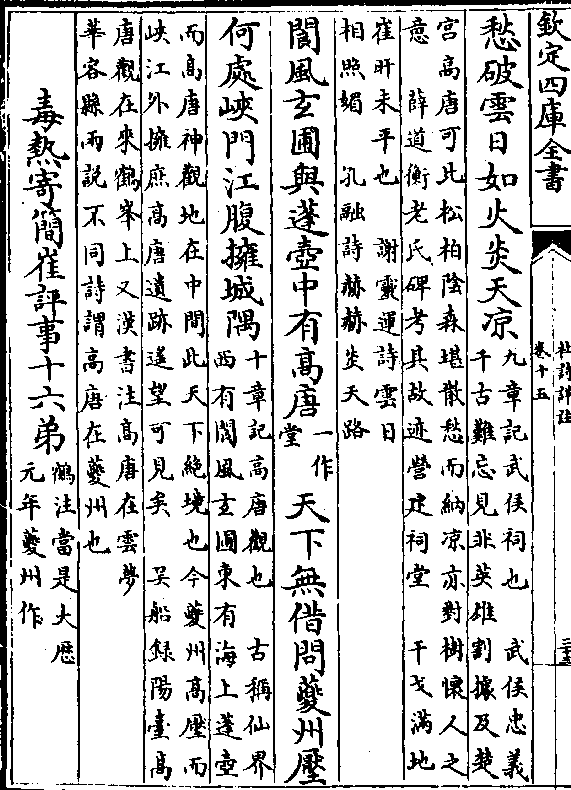 欽定四庫全書
杜詩詳註
卷十五
三十
愁破雲日如火炎天凉
九章記武侯祠也　武侯忠義
千古難忘見非英雄割據及楚
宮高唐可比松柏陰森堪散愁而納凉亦對樹懷人之
意　薛道衡老氏碑考其故迹營建祠堂　干戈滿地
崔旰未平也　謝靈運詩雲日
相照媚　孔融詩赫赫炎天路
閬風玄圃與蓬壺中有高唐
一作
堂
天下無借問夔州壓
何處峽門江腹擁城隅
十章記高唐觀也　古稱仙界
西有閬風玄圃東有海上蓬壺
而高唐神觀地在中間此天下絶境也今夔州高壓而
峽江外擁庶高唐遺跡遥望可見矣　吴船録陽臺高
唐觀在來鶴峯上又漢書注高唐在雲夢
華容縣兩説不同詩謂高唐在夔州也
毒熱寄簡崔評事十六弟
鶴注當是大厯
元年夔州作